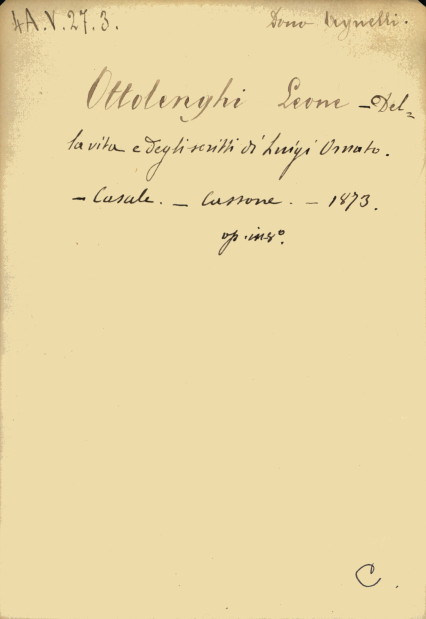 4A.V.27.3. Dono Agnelli.
Ottolenghi Leone - Del=
la vita e degli scritti di Luigi Ornato.
- Casale. - Cassone. - 1873.
op. in 8°.
C.